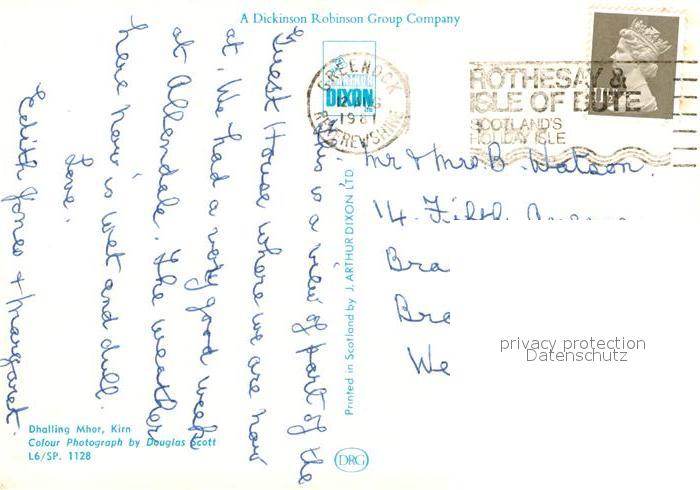 A Dickinson Robinson Group Company
This is a view of part of the
Guest House where we are now
at. We had a very good week
at Allendale. The weather
here now is wet and dull.
Love.
Edith Jones & Margaret.
Dhalling Mhor, Kirn
Colour Photograph by Douglas Scott
L6/SP. 1128
Printed in Scotland by J. ARTHUR DIXON LTD
DIXON
DRG
GREENOCK
1981
RENFREWSHIRE
ROTHESAY &
ISLE OF BUTE
SCOTLAND'S
HOLIDAY ISLE
Mr & Mrs. B. Watson.
14. Fifth Avenue
Bra
Bre
We
privacy protection
Datenschutz